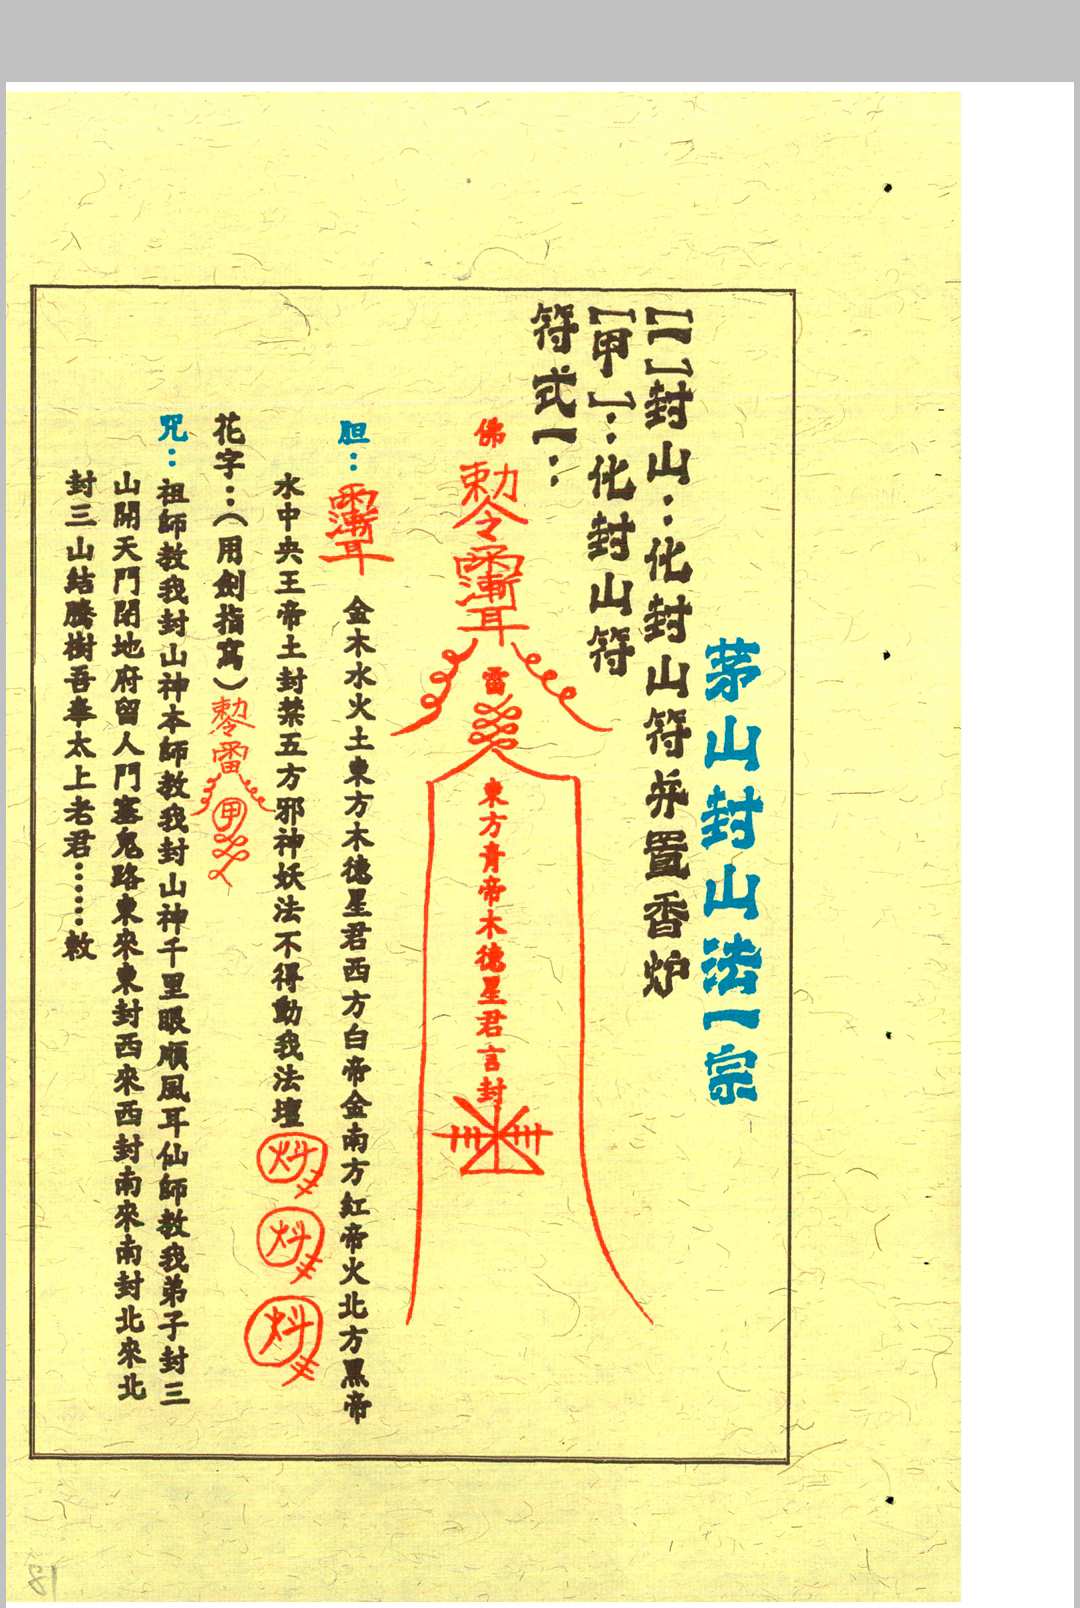 茅山封山法一宗
[一]封山：化封山符并置香炉
[甲]：化封山符
符式一：
佛
勅令
雷
東方青帝木德星君言封
胆：
金木水火土東方木德星君西方白帝金南方紅帝火北方黑帝
水中央王帝土封禁五方邪神妖法不得動我法壇
花字：（用劍指寫）勅令雷甲
咒：祖師教我封山神本師教我封山神千里眼順風耳仙師教我弟子封三
山開天門閉地府留人門塞鬼路東來東封西來西封南來南封北來北
封三山結騰樹吾奉太上老君……敕